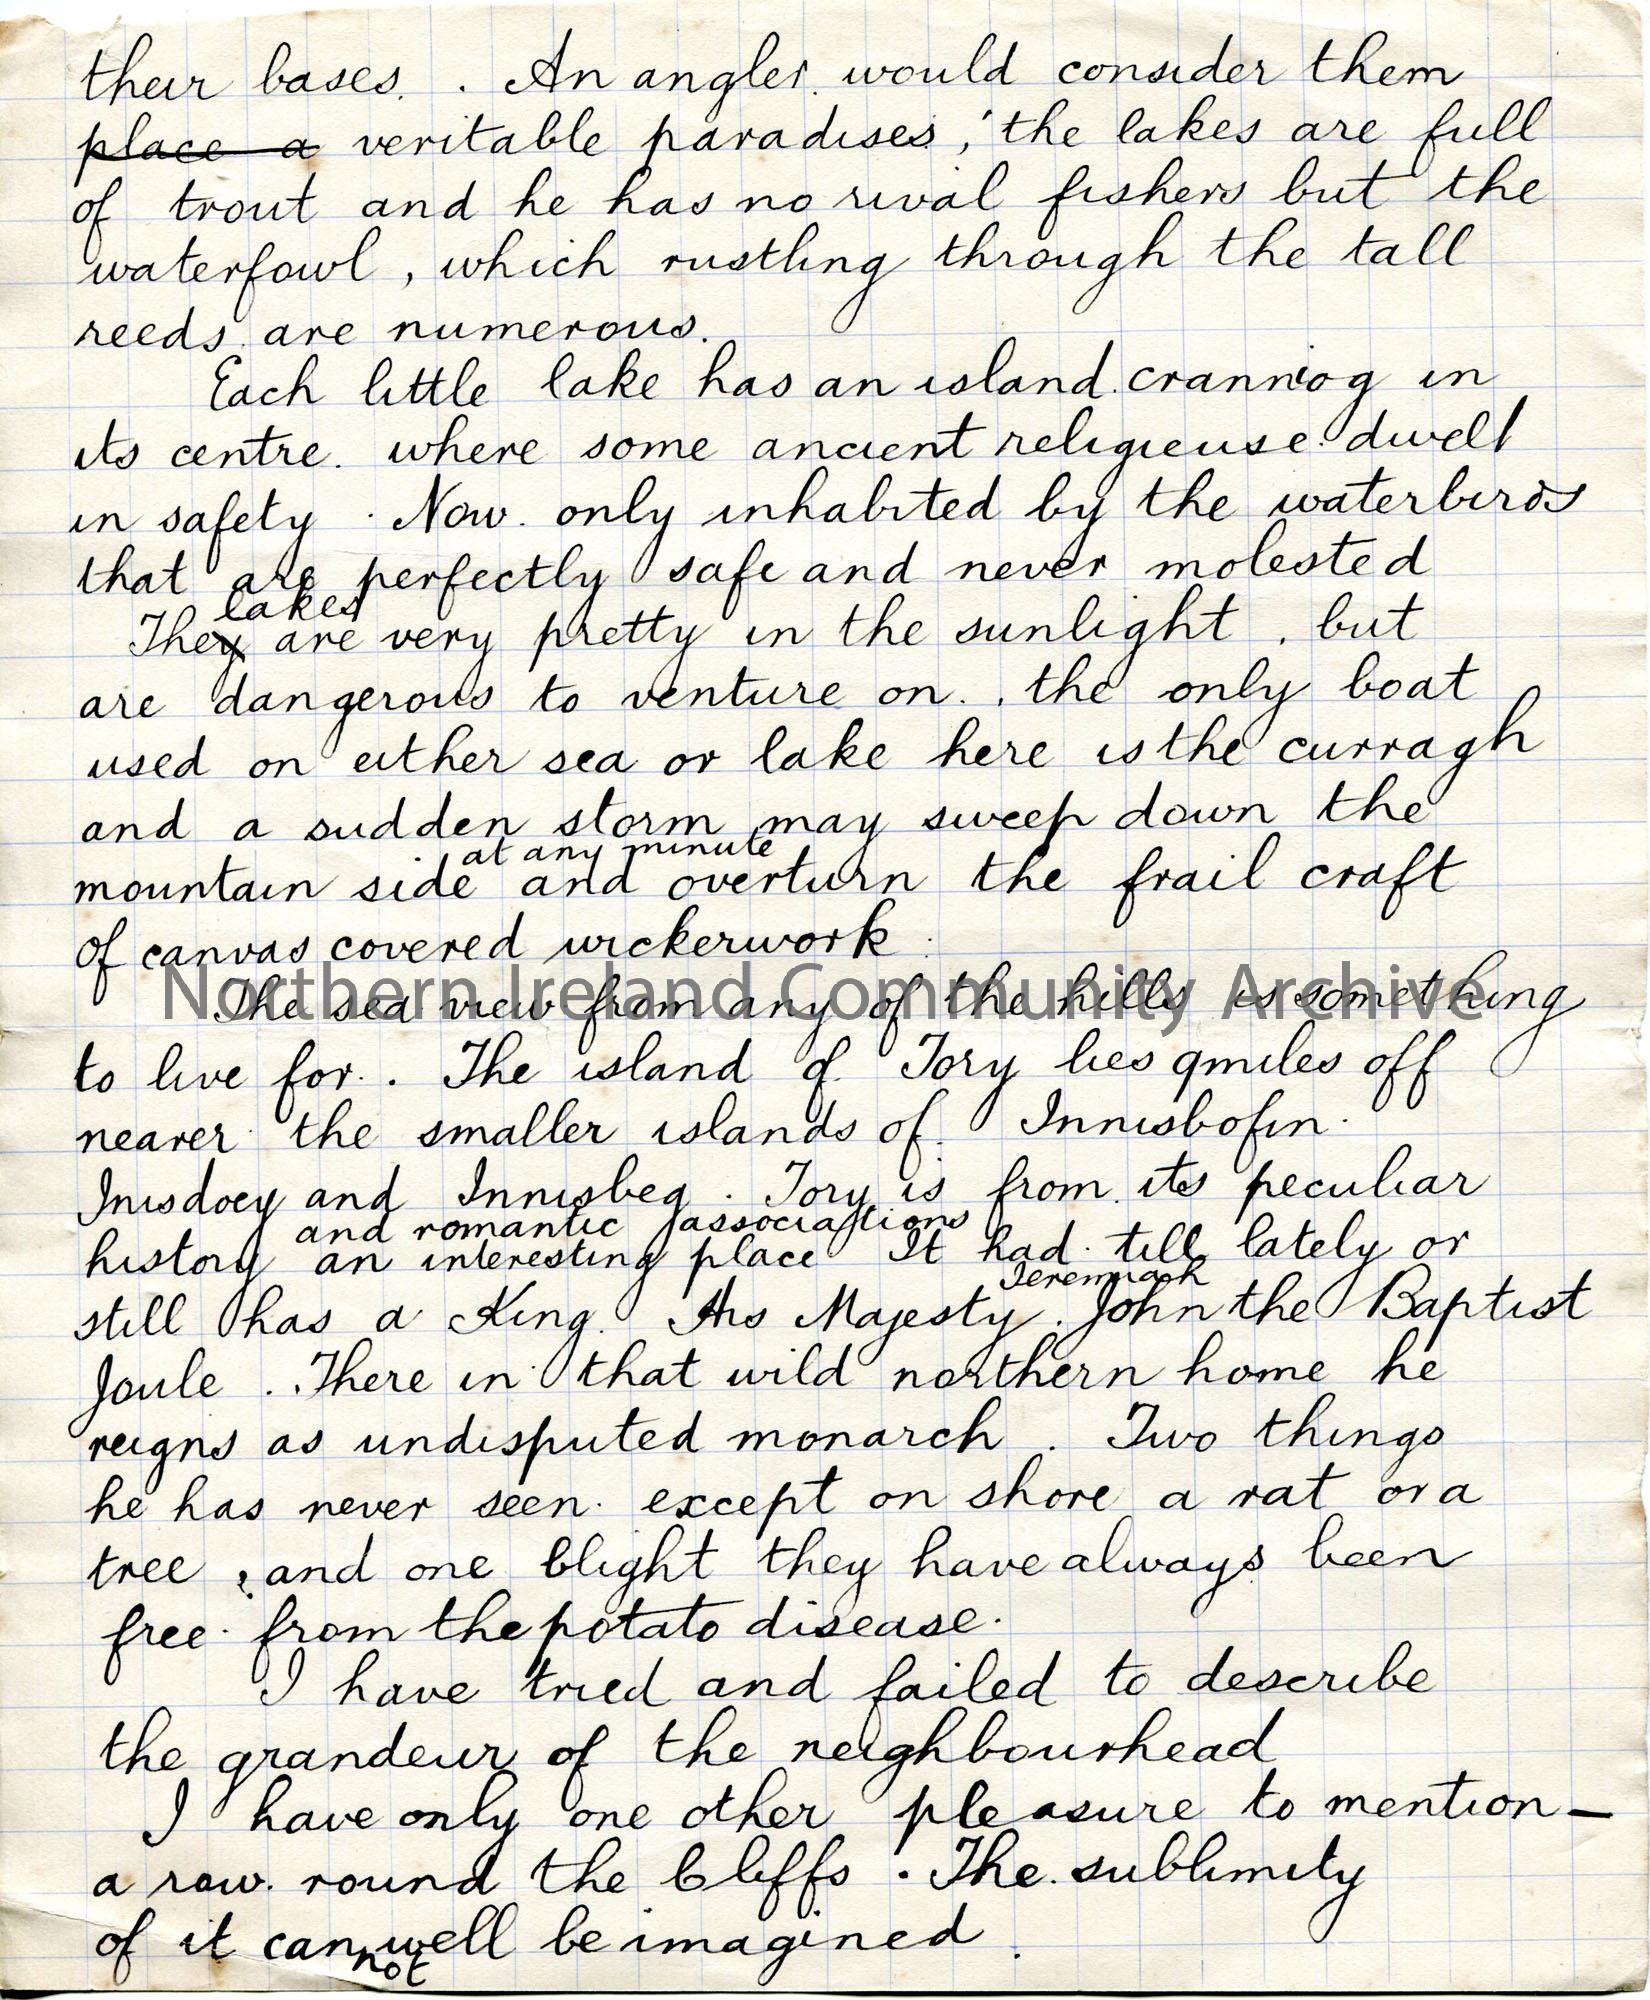 their bases. . An angler would consider them
place a veritable paradises, the lakes are full
of trout and he has no rival fishers but the
waterfowl, which rustling through the tall
reeds are numerous.
Each little lake has an island crannog in
its centre. where some ancient religieuse dwelt
in safety. Now. only inhabited by the waterbirds
that are perfectly safe and never molested
lakes
They are very pretty in the sunlight, but
are dangerous to venture on. . the only boat
used on either sea or lake here is the curragh
and a sudden storm may sweep down the
at any minute
mountain side and overturn the frail craft
of canvas covered wickerwork.
Northern Ireland Community Archive
The sea view from any of the hills is something
to live for. . The island of Tory lies 9 miles off
nearer the smaller islands of Innisbofin.
Inisdoey and Innisbeg. Tory is from its peculiar
and romantic associations
history an interesting place It had till lately or
Jeremiah
still has a King. His Majesty. John the Baptist
Joule. . There in that wild northern home he
reigns as undisputed monarch. Two things
he has never seen. except on shore a rat or a
tree, and one blight they have always been
free from the potato disease.
I have tried and failed to describe
the grandeur of the neighbourhead
I have only one other pleasure to mention -
a row. round the Cliffs. The sublimity
of it can well be imagined.
not